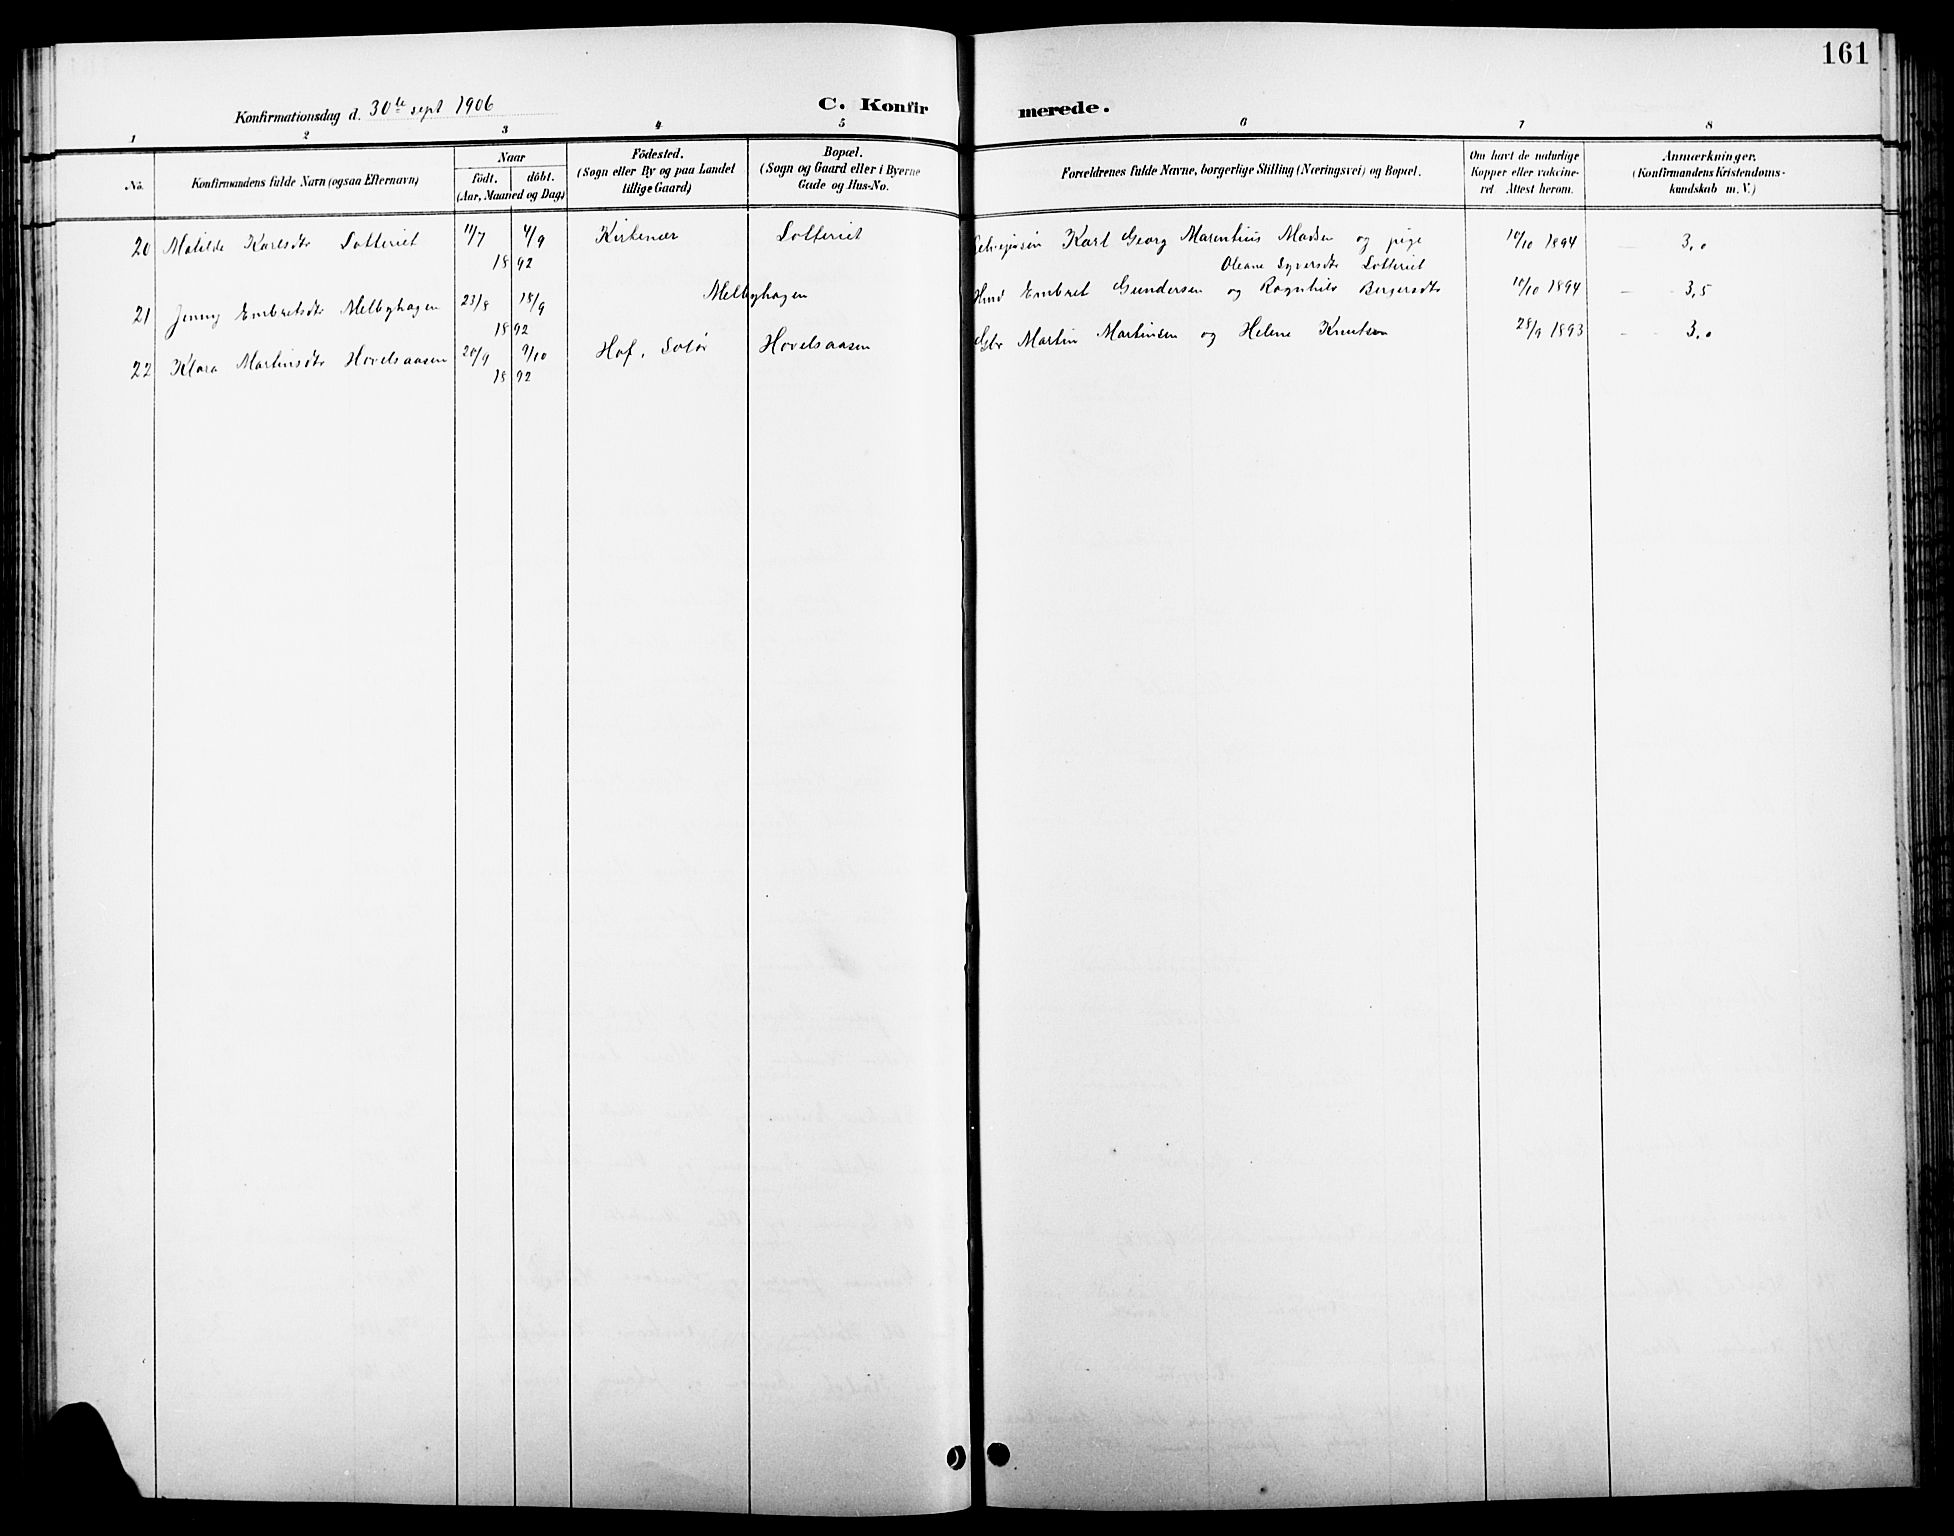 161
Konfirmationsdag d. 30te sept 1906 C. Konfirmerede.
1 2 3 4 5 6 7 8
No. Konfirmandens fulde Navn (ogsaa Efternavn) Naar födt. döbt. (Aar, Maaned og Dag) Födested. (Sogn eller By og paa Landet tillige Gaard) Bopæl. (Sogn og Gaard eller i Byerne Gade og Hus-No. Forældrenes fulde Navne, borgerlige Stilling (Næringsvei) og Bopæl. Om havt de naturlige Kopper eller vakcineret. Attest herom. Anmærkninger. (Konfirmandens Kristendomskundskab m. V.)
20 Matilde Karlsdtr Lotteriet 11/7 4/9 Kirkenær Lotteriet Karl Georg Marentius Madsen og pige 10/10 1894 — 3,0
18 92 Oleane Syversdtr Lotteriet
21 Jenny Embretsdtr Melbyhagen 23/8 18/9 Melbyhagen Embret Gundersen og Ragnhild Bergersdtr 10/10 1894 — 3,5
18 92
22 Klara Martinsdtr Hovelsaasen 20/9 9/10 Hof, Solør Hovelsaasen Martin Martinsen og Helene Knutsen 28/9 1893 — 3,0
18 92